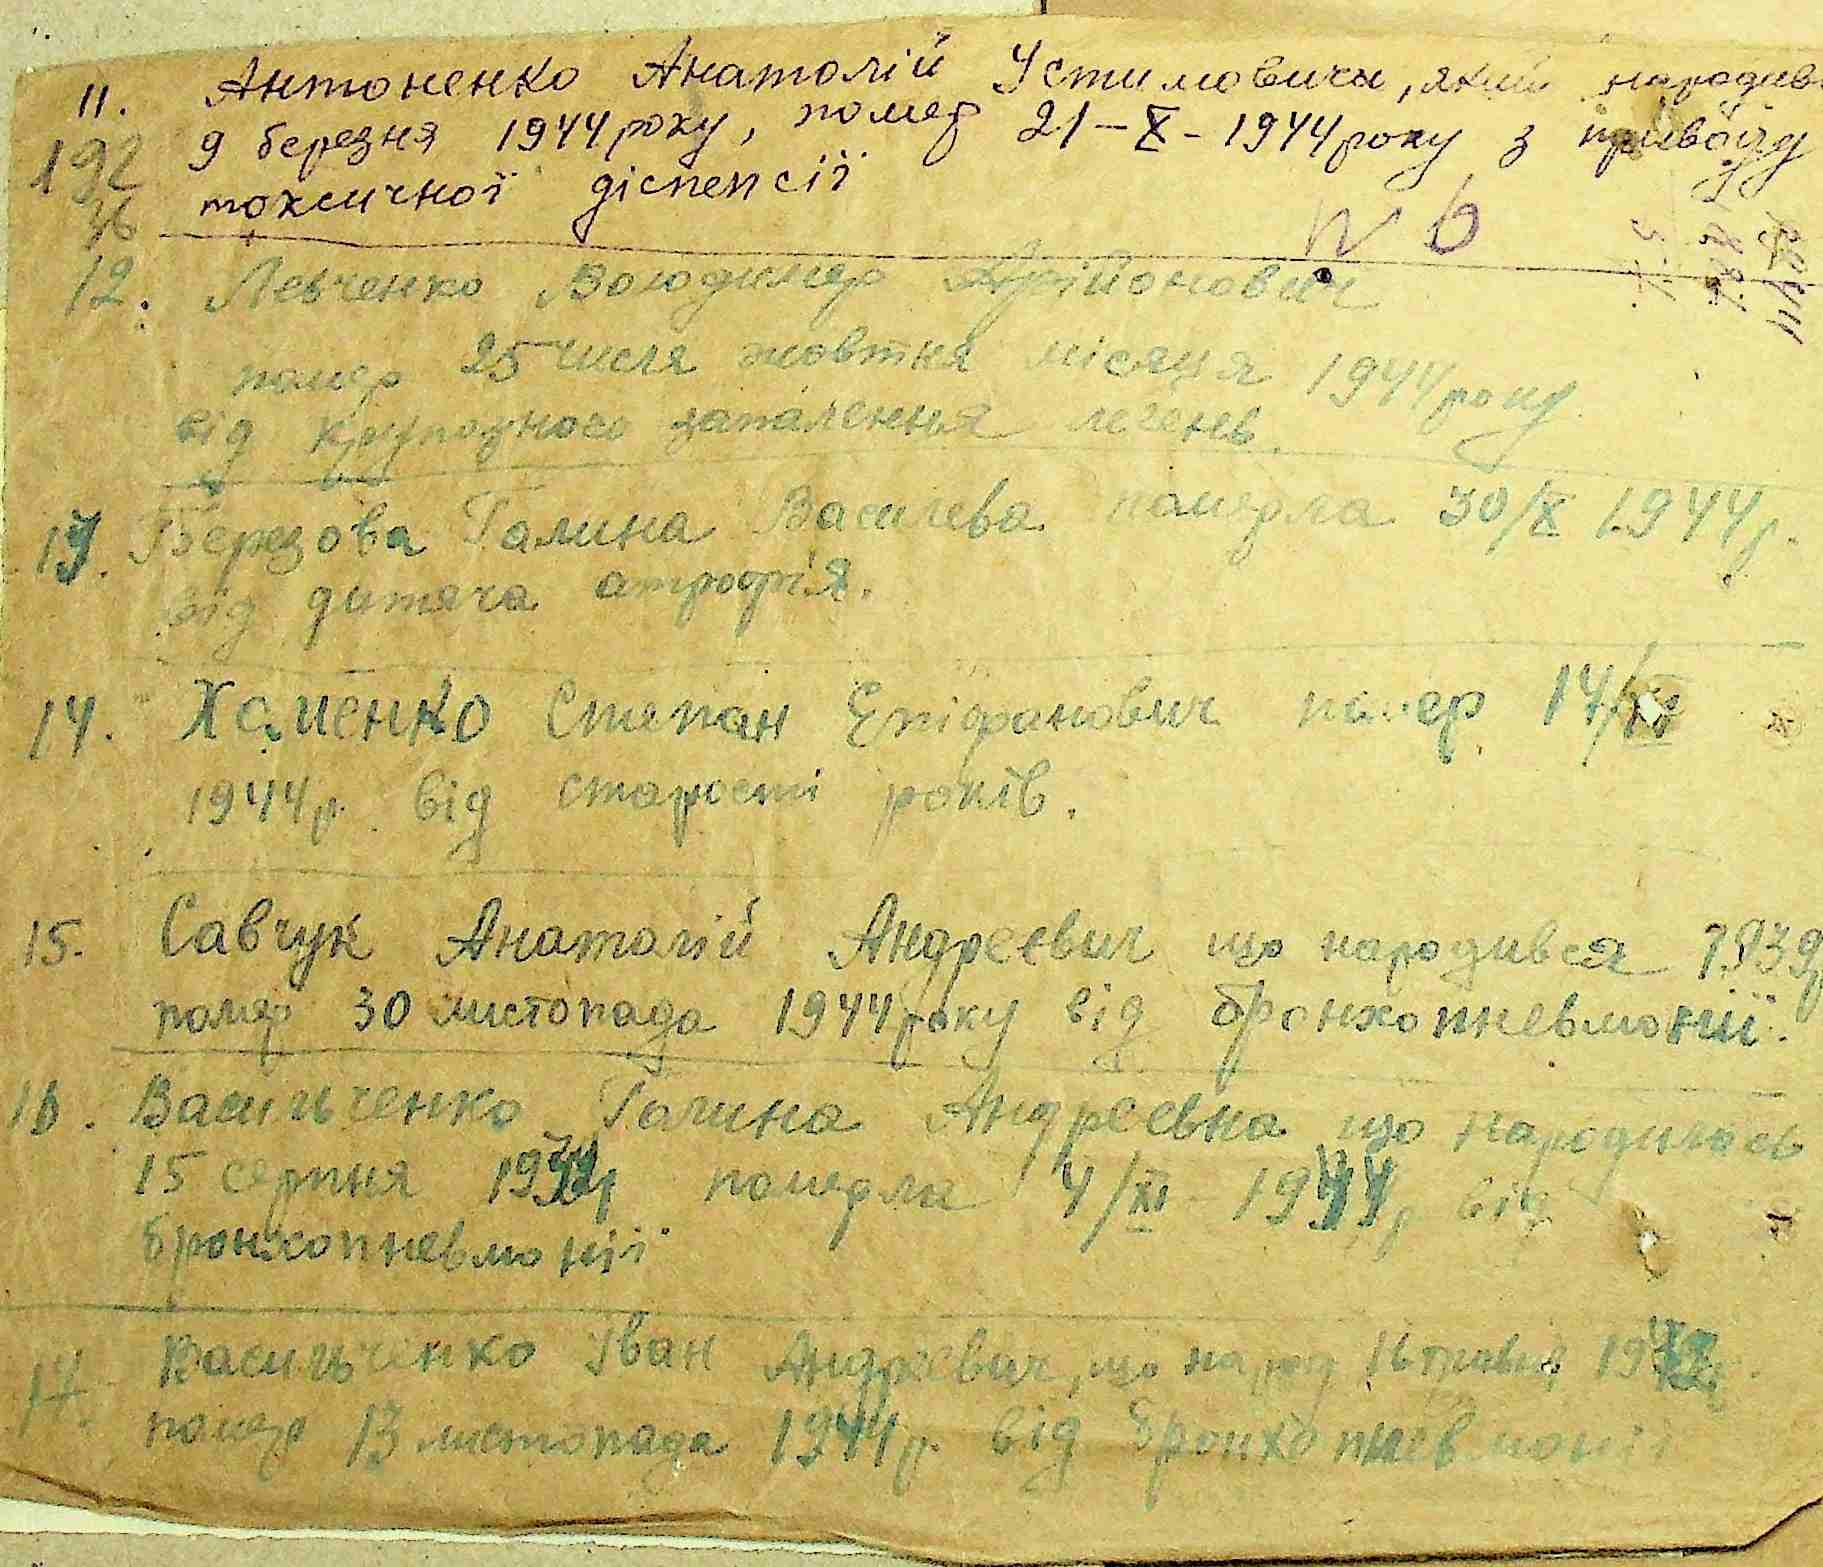 11. Антоненко Анатолій Устимович, який народивс
9 березня 1944 року, помер 21-X-1944 року з приводу
192
токсичної діспепсії
36
N 6
12. Левченко Володимер
помер 25 числа жовтня місяця 1944 року
від крупозного запалення легенів
13. Березова Галина Василева померла 30/X 1944 р.
від дитяча атрофія.
14. Хоменко Степан Епіфанович помер 14/
1944 р. від старости років.
15. Савчук Анатолій Андреевич що народився 1939р
помер 30 листопада 1944 року від бронхопневмонії.
16. Васильченко Галина Андреевна що народилась
15 серпня померла 4/XI - 1944р від
бронхопневмонії
17. Васильченко Іван Андреевич, що народ 16 травня
помер 13 листопада 1944 р. від бронхопневмонії